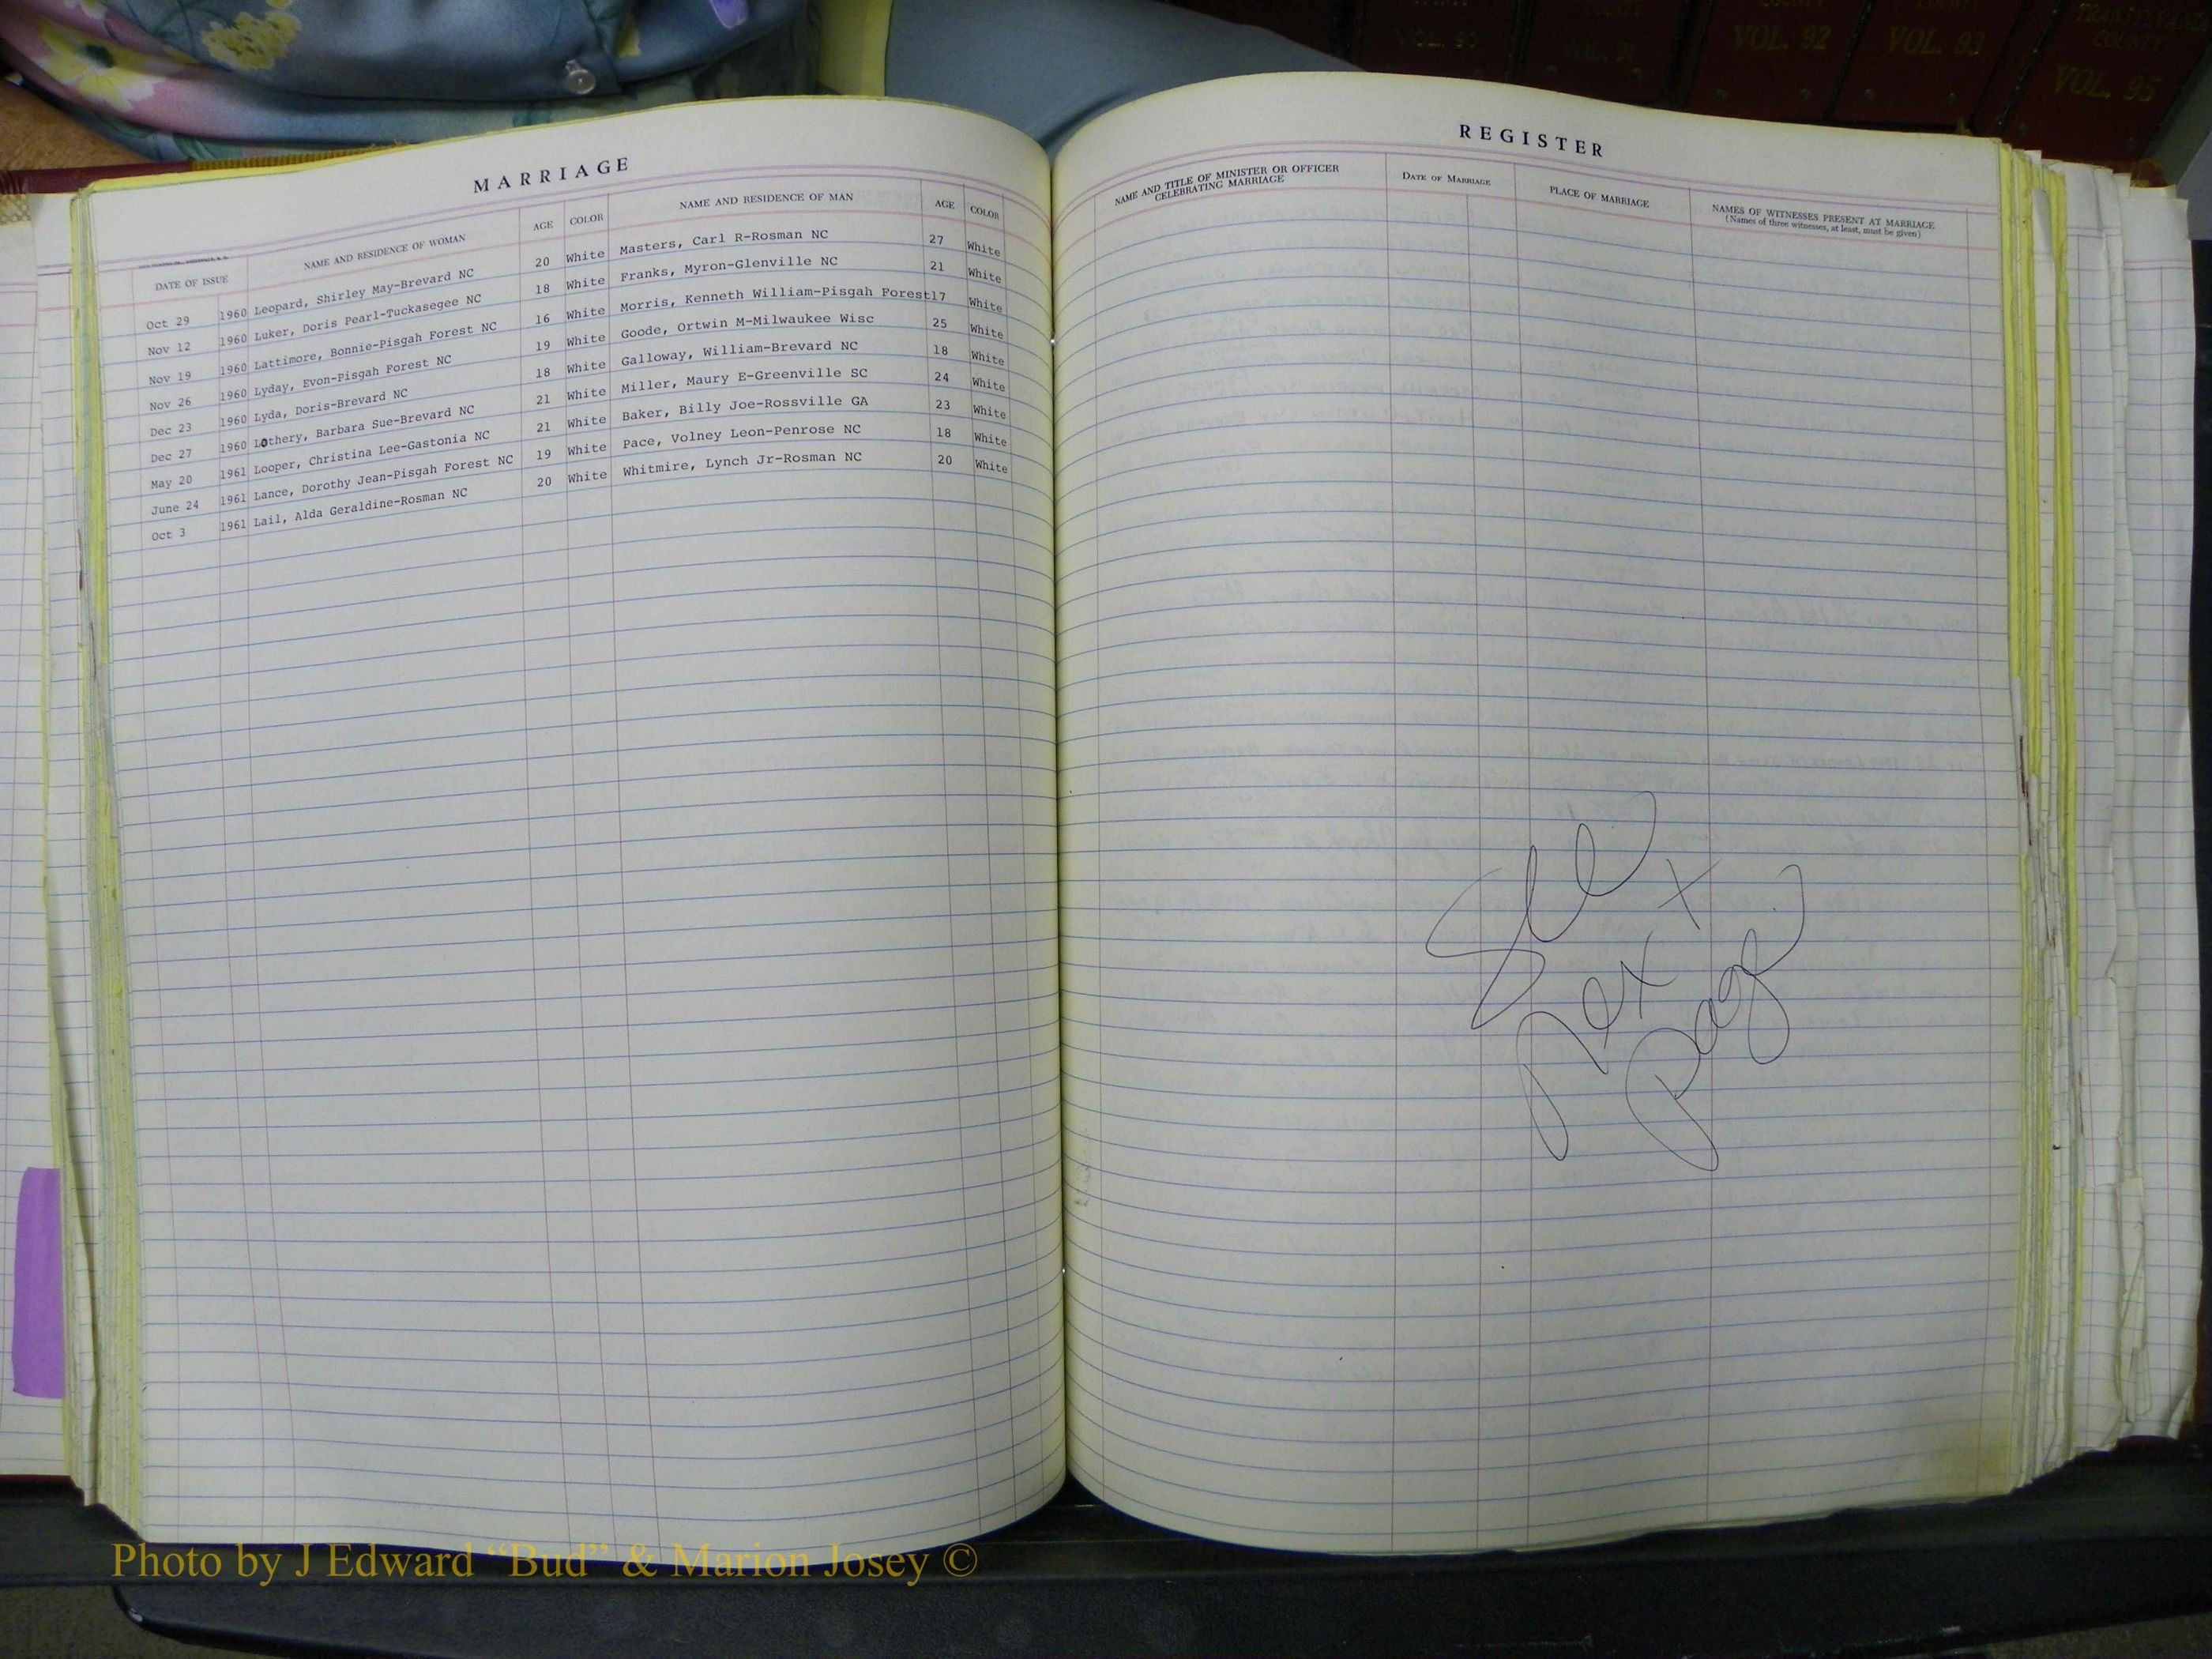 VOL. 90
VOL. 91
COUNTY
VOL. 92
COUNTY
VOL. 93
TRANSYLVANIA
COUNTY
VOL. 95
MARRIAGE
DATE OF ISSUE NAME AND RESIDENCE OF WOMAN AGE COLOR NAME AND RESIDENCE OF MAN AGE COLOR
Oct 29 1960 Leopard, Shirley May-Brevard NC 20 White Masters, Carl R-Rosman NC 27 White
Nov 12 1960 Luker, Doris Pearl-Tuckasegee NC 18 White Franks, Myron-Glenville NC 21 White
Nov 19 1960 Lattimore, Bonnie-Pisgah Forest NC 16 White Morris, Kenneth William-Pisgah Forest 17 White
Nov 26 1960 Lyday, Evon-Pisgah Forest NC 19 White Goode, Ortwin M-Milwaukee Wisc 25 White
Dec 23 1960 Lyda, Doris-Brevard NC 18 White Galloway, William-Brevard NC 18 White
Dec 27 1960 Lothery, Barbara Sue-Brevard NC 21 White Miller, Maury E-Greenville SC 24 White
May 20 1961 Looper, Christina Lee-Gastonia NC 21 White Baker, Billy Joe-Rossville GA 23 White
June 24 1961 Lance, Dorothy Jean-Pisgah Forest NC 19 White Pace, Volney Leon-Penrose NC 18 White
Oct 3 1961 Lail, Alda Geraldine-Rosman NC 20 White Whitmire, Lynch Jr-Rosman NC 20 White
REGISTER
NAME AND TITLE OF MINISTER OR OFFICER
CELEBRATING MARRIAGE
DATE OF MARRIAGE
PLACE OF MARRIAGE
NAMES OF WITNESSES PRESENT AT MARRIAGE
(Names of three witnesses, at least, must be given)
See
Next
Page
Photo by J Edward “Bud” & Marion Josey ©